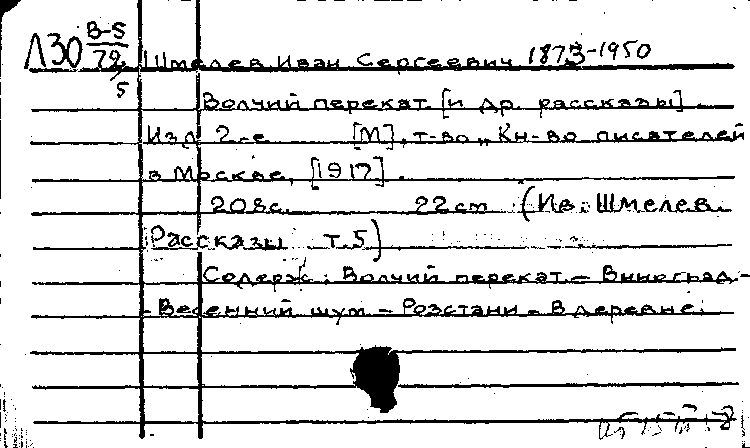 Л30 В-5/72/5
Шмелев Иван Сергеевич 1873-1950
Волчий перекат [и др. рассказы].
Изд 2-е [М], т-во „Кн-во писателей
в Москве, [1917].
208с. 22cm (Ив. Шмелев.
Рассказы т.5)
Содерж: Волчий перекат – Виноград –
- Весенний шум – Розстани – В деревне.